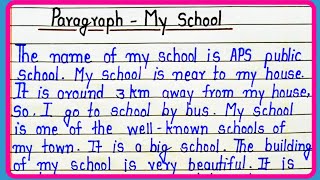 Paragraph - My School
The name of my school is APS public
school. My school is near to my house.
It is around 3 km away from my house,
so, I go to school by bus. My school
is one of the well-known schools of
my town. It is a big school. The building
of my school is very beautiful. It is